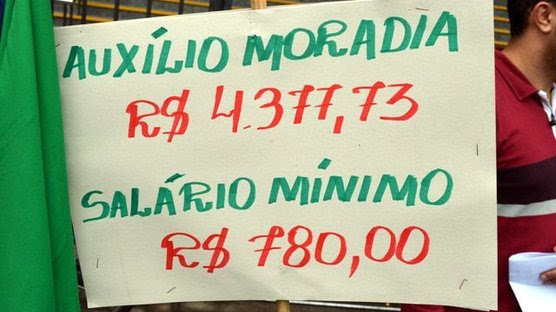 AUXÍLIO MORADIA
R$ 4.377,73
SALÁRIO MÍNIMO
R$ 780,00